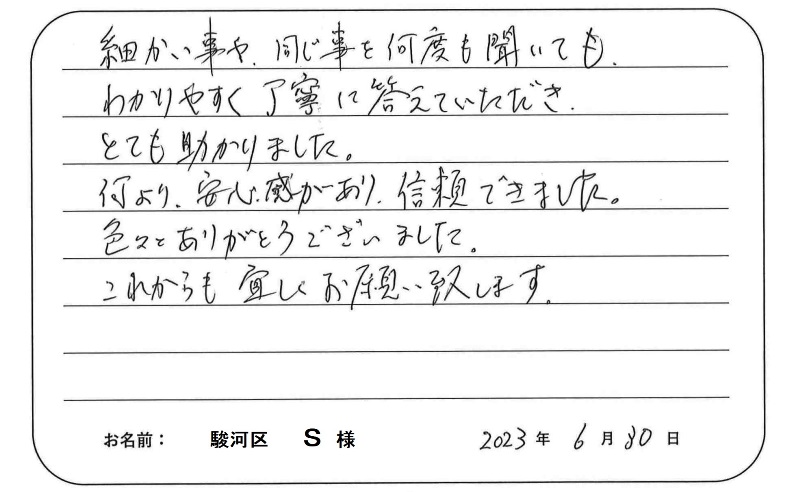 細かい事や、同じ事を何度も聞いても、
わかりやすく丁寧に答えていただき、
とても助かりました。
何より、安心感があり、信頼できました。
色々とありがとうございました。
これからも宜しくお願い致します。
お名前： 駿河区 S 様 2023 年 6 月 30 日